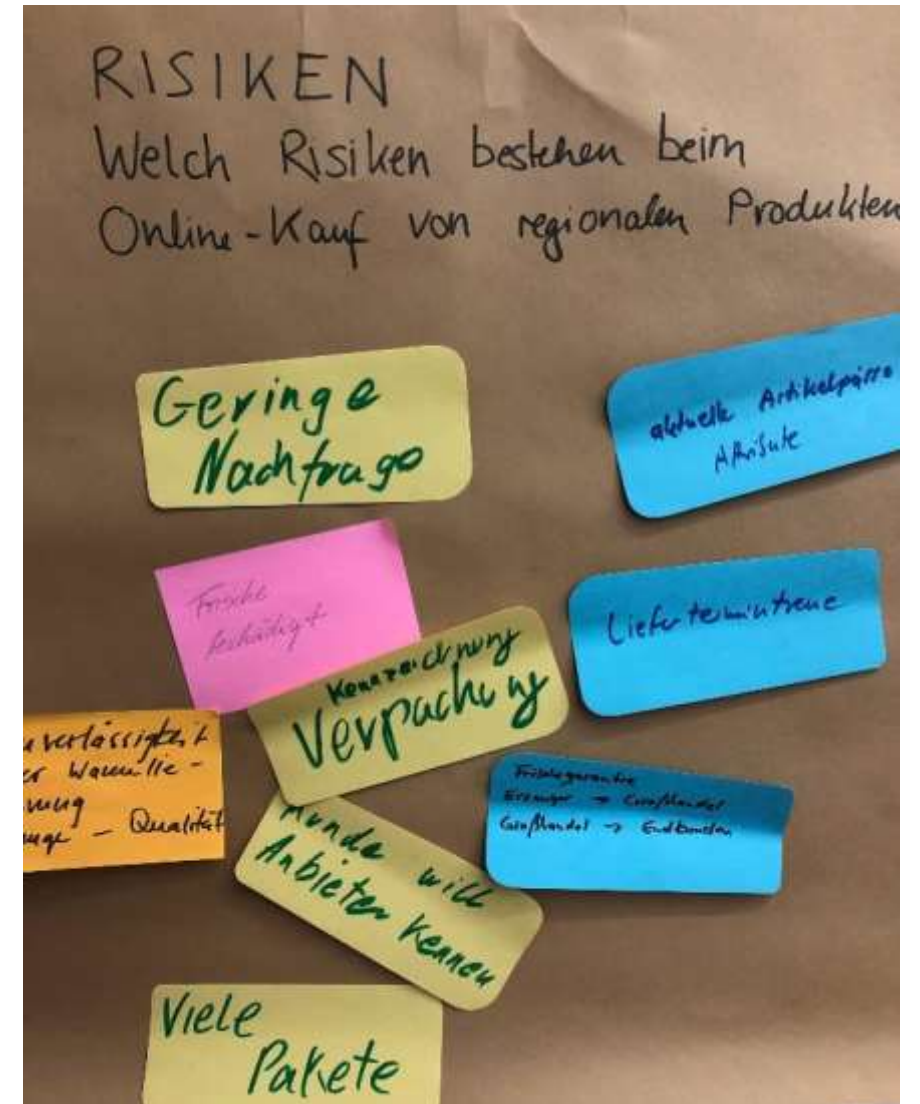 RISIKEN
Welch Risiken bestehen beim
Online-Kauf von regionalen Produkten
Geringe
Nachfrage
aktuelle
Attribute
Frische
beschädigt
Liefertermintreue
Kennzeichnung
Verpackung
verlässigkeit
- Qualität
Frischegarantie
Erzeuger → Großhandel
Großhandel → Endkunden
Kunde will
Anbieter kennen
Viele
Pakete